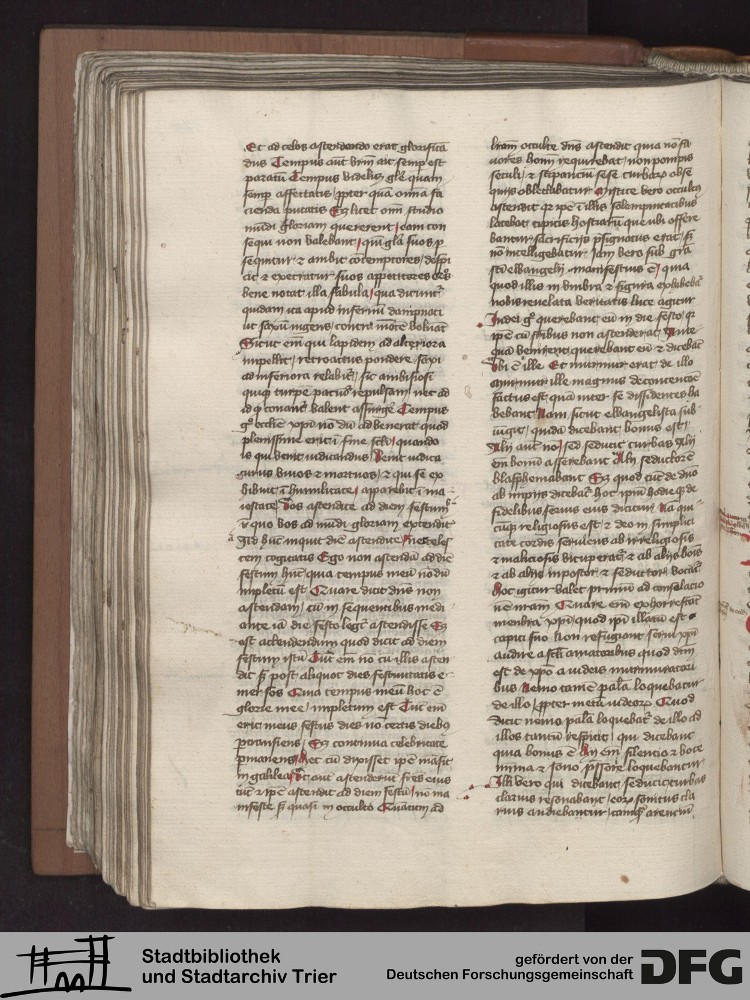 Et ad celos ascendendo erat glorifica
dus Tempus aūt vrm̄ ait semp est
paratū Tempus videlicꝫ glē quam
semp affectatis / ppter quā omīa fa
cienda putatis Sꝫ licet omi studio
mūdi gloriam quererent / eam con
sequi non valebant / qm̄ glā suos p
sequitur et ambit cōtemptores / despi
cit et execratur suos appetitores
bene notat illa fabula / qua dicunt̄
quidam ita apud infernū dampnati
ut saxū ingens contra mōtē volvāt
Sicut em̄ qui lapidem ad alteriora
impellit / retroactus pondere saxi
ad inferiora relabit̄ / sic ambisiosi
quiqꝫ turpē paciūt repulsam / nec ad
id qd conant̄ valent assurgē Tempus
gͦ ecclie xpi nō dū advenerat quod
plenissime erit in fine sclī / quando
is qui venit iudicandus / venit iudica
turus vivos et mortuos / et qui se ex
hibuit ī humilitate / apparebit ī ma
iestate Vos ascendite ad diem festum
ī quo vos ad mūdi gloriam extendit
Ad hūc inquit diē ascendite
cogitatis Ego non ascendā ad diē
festum hūc / quia tempus meū nōdū
impletū est Quare dicit dn̄s non
ascendam / cū in sequentibus medi
ante iā die festo legit̄ ascendisse Sꝫ
est attendendum quod dicit ad diem
festum istū Tūc em̄ nō cū illis ascen
dit sꝫ post aliquot dies festivitatis e
mersos Quia tempus meū hoc ē
glorie mee / impletum est Tūc em̄
erit meus festus dies nō certis diebꝫ
ptransiens / Sꝫ continua celebritate
pmanens / Hec cū dixisset ipē māsit
in galilea Vt aūt ascenderūt fr̄es eius
tūc et ipē ascendit ad diem festū / nō ma
nifeste sꝫ quasi in occulto Quātum ad
lr̄am occulte dn̄s ascendit quia nō fa
vores hom̄ requirebat / non pompis
seculi / et stipanciū sese turbarꝫ obse
quiis oblectabatur Mistice vero occultꝫ
ascendit qꝫ ipē ī illis solempnitatibus
latebat / tipicis hostiarū que ubi offere
bantur / sacrificiis p̄signatus erat / sꝫ
nō intelligebatur Iam vero sub grā
sctī ewangelii manifestus ē / quia
quod illis in umbra et figura exhibebat̄
nobis revelata veritatis luce agitur
Iudei gͦ querebant eū in die festo / qꝫ
ipē cū fr̄ibus non ascenderat Ante
quā veniret / querebant eū et dicebāt
Ubi ē ille Et murmur erat de illo
murmur ille magnus de contencōe
factus est / quā inter se dissidentes ha
bebant Nam sicut ewangelista sub
iūgit / quidā dicebant / bonus est /
Alii aūt nō / sed seducit turbas Alii
em̄ bonū asserebant Alii seductorē
blasphemabant Sꝫ quod tūc de dn̄o
ab impiis dicebat̄ / hoc ipm̄ hodie qꝫ de
fidelibus servis eius dicitur / Nā qui
cūqꝫ religiosus est / et deo in simplici
tate cordis serviens ab irreligiosis
et maliciosis vituperat̄ / et ab aliis bonꝰ
et ab aliis impostor et seductor vocat̄
Hoc igitur valet primū ad consolacio
nē nr̄am Quare em̄ exhorrescāt
membra xpi / quod ipi illatū est
capiti suo Non refugiant servi xpi
audire a sclī amatoribus quod dm̄
est de xpo a iudeis murmuratori
bus Nemo tamē palā loquebatur
de illo / ppter metū iudeorꝫ Quod
dicit / nemo palā loquebat̄ de illo ad
illos tantū respicit / qui dicebant
quia bonus ē Hii em̄ silencio et voce
mīma et sono pressore loquebantur
Illi vero qui dicebant seducit turbas
clarius resonabant / eorꝫ sonitus cla
rius audiebantur / tamqꝫ arencium
Stadtbibliothek
und Stadtarchiv Trier
gefördert von der
Deutschen Forschungsgemeinschaft
DFG